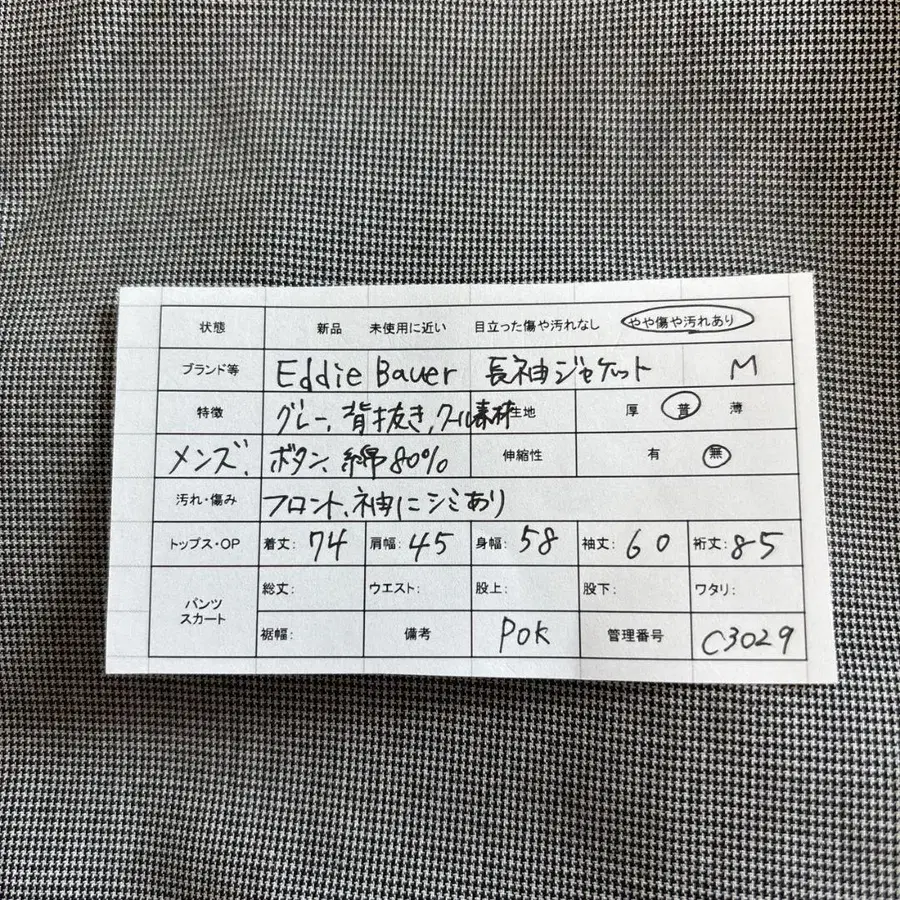 状態 新品 未使用に近い 目立った傷や汚れなし やや傷や汚れあり
ブランド等 Eddie Bauer 長袖ジャケット M
特徴 グレー、背抜き、ウール素材 生地 厚 普 薄
メンズ、ボタン、綿80% 伸縮性 有 無
汚れ・傷み フロント、袖にシミあり
トップス・OP 着丈: 74 肩幅: 45 身幅: 58 袖丈: 60 裄丈: 85
パンツ スカート 総丈: ウエスト: 股上: 股下: ワタリ:
裾幅: 備考 POK 管理番号 C3029